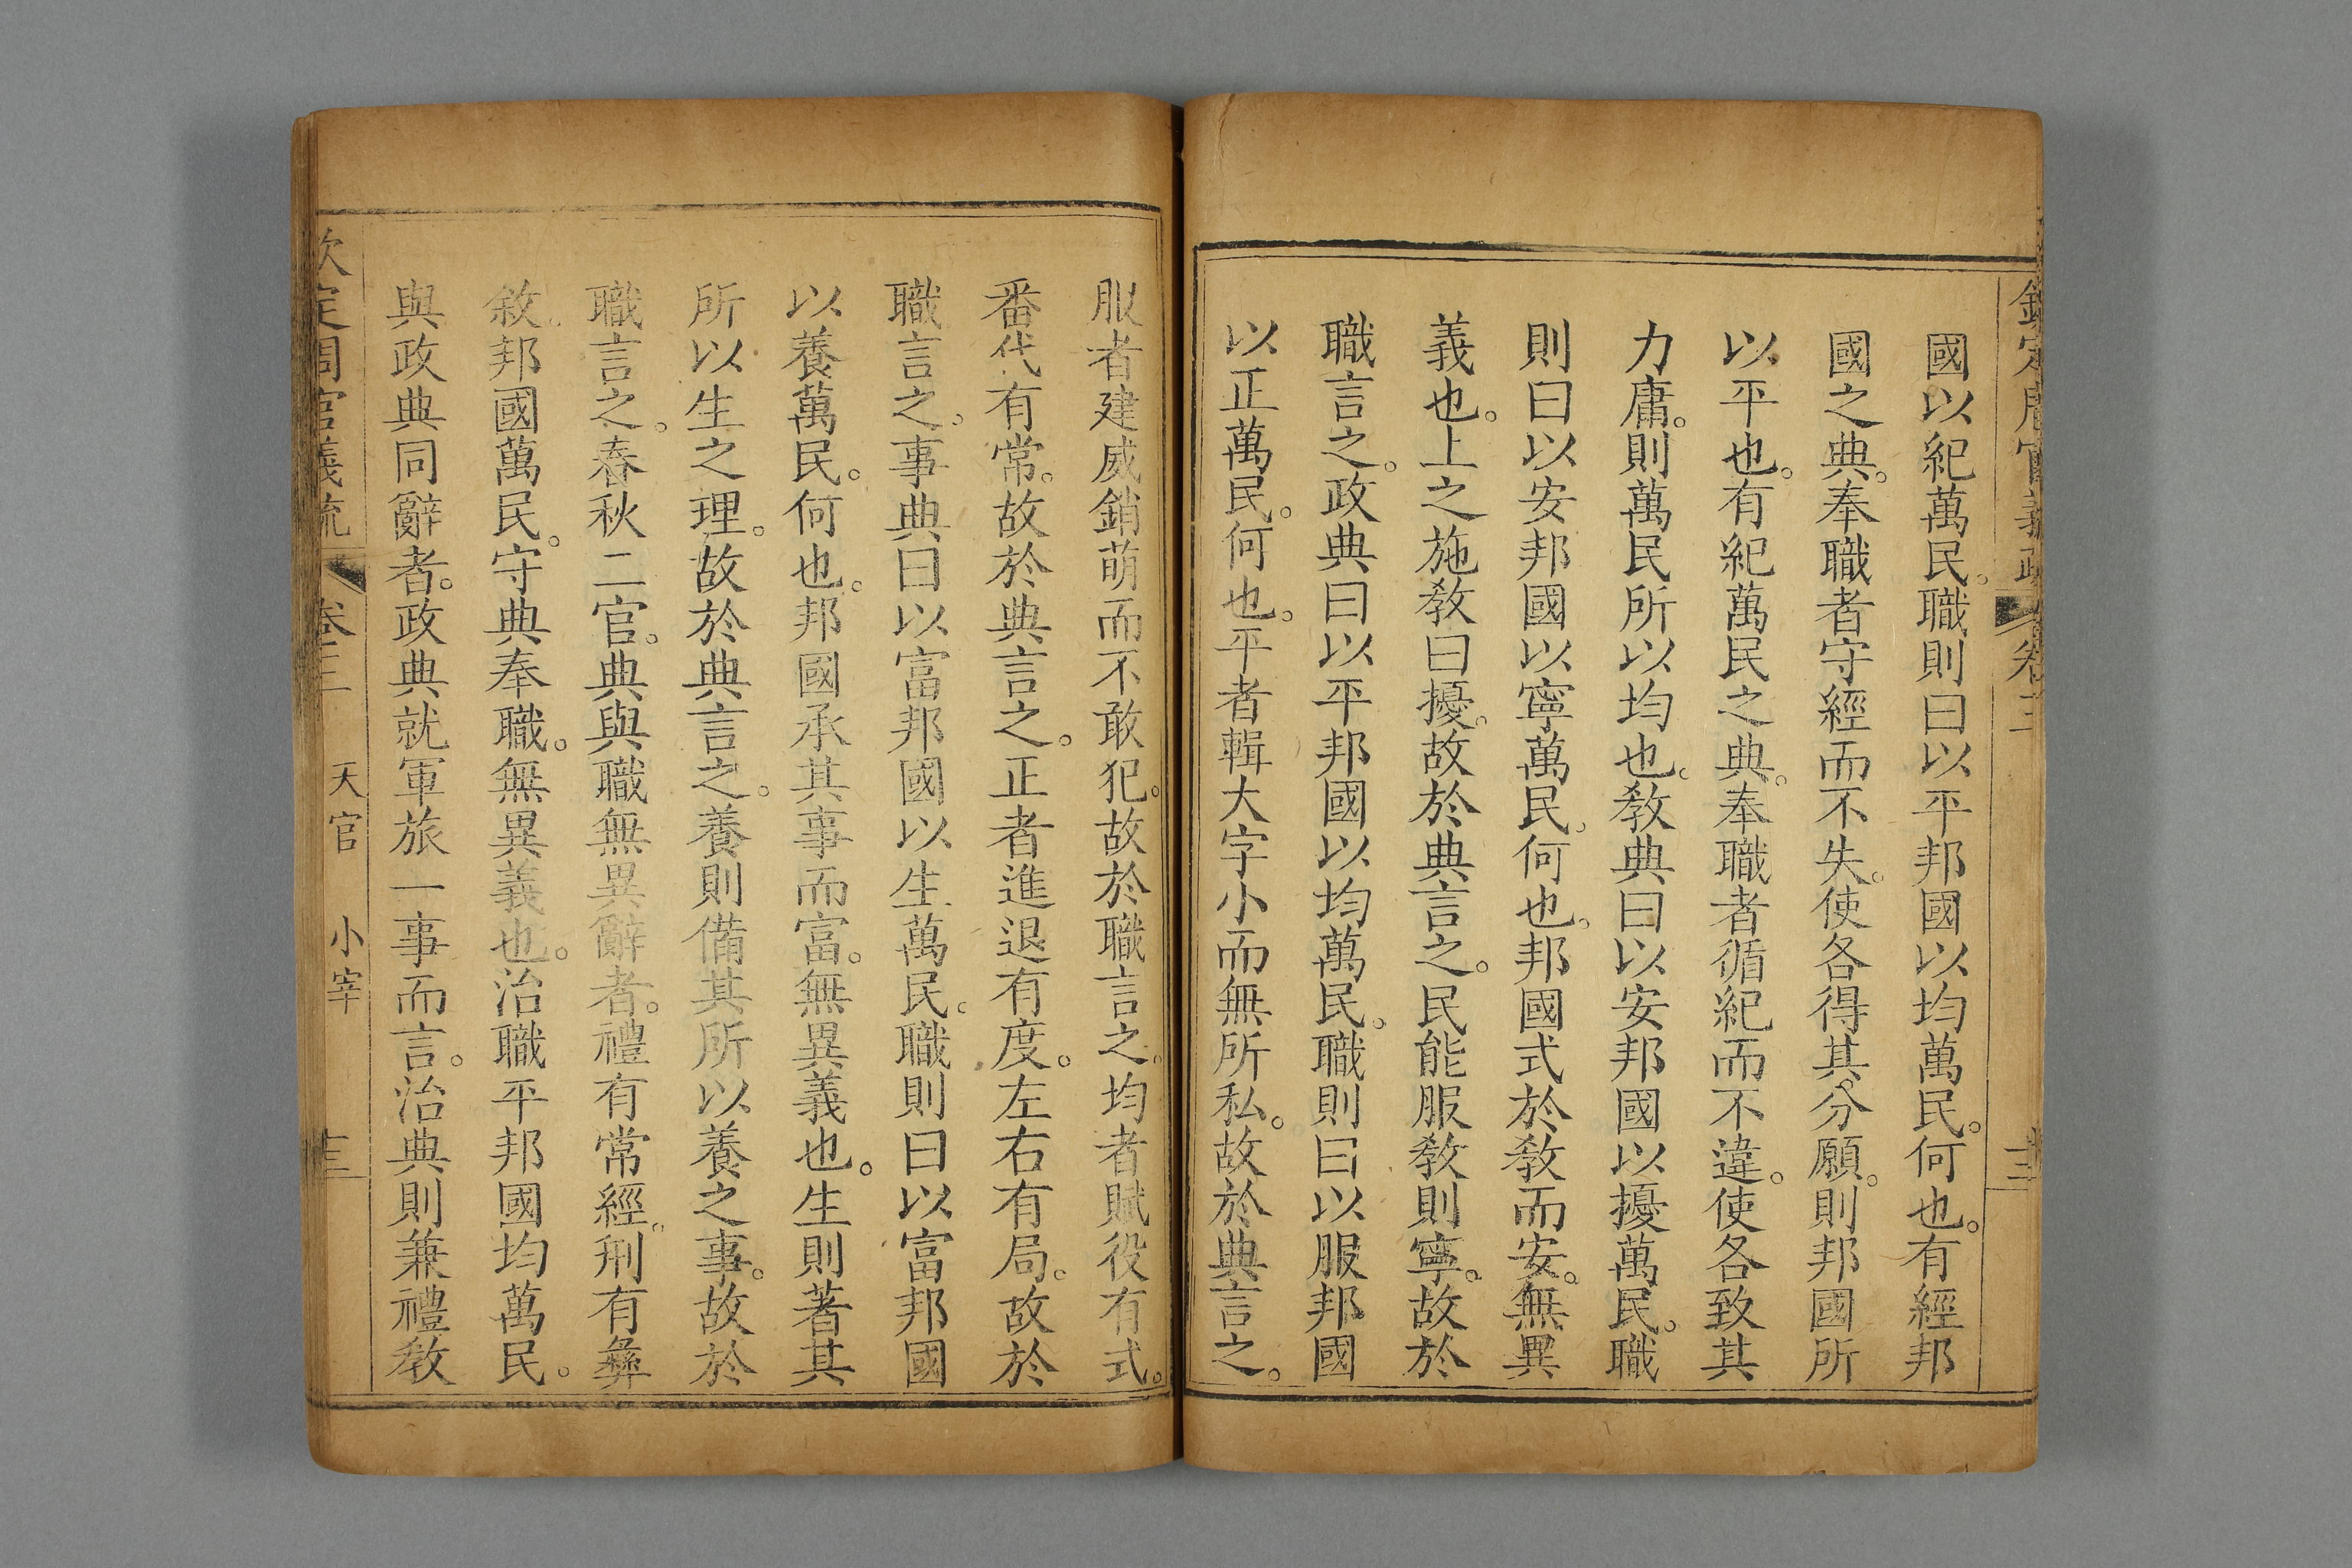 欽定周官義疏 卷三
國以紀萬民。職則曰以平邦國以均萬民。何也。有經邦
國之典。奉職者守經而不失。使各得其分願。則邦國所
以平也。有紀萬民之典。奉職者循紀而不違。使各致其
力庸。則萬民所以均也。敎典曰以安邦國以擾萬民。職
則曰以安邦國以寧萬民。何也。邦國式於敎而安。無異
義也。上之施敎曰擾。故於典言之。民能服敎則寧。故於
職言之。政典曰以平邦國以均萬民。職則曰以服邦國
以正萬民。何也。平者輯大字小而無所私。故於典言之。
服者建威銷萌而不敢犯。故於職言之。均者賦役有式。
番代有常。故於典言之。正者進退有度。左右有局。故於
職言之。事典曰以富邦國以生萬民。職則曰以富邦國
以養萬民。何也。邦國承其事而富。無異義也。生則著其
所以生之理。故於典言之。養則備其所以養之事。故於
職言之。春秋二官。典與職無異辭者。禮有常經。刑有彝
敘。邦國萬民。守典奉職。無異義也。治職平邦國均萬民。
與政典同辭者。政典就軍旅一事而言。治典則兼禮敎
欽定周官義疏 卷三 天官 小宰 十三